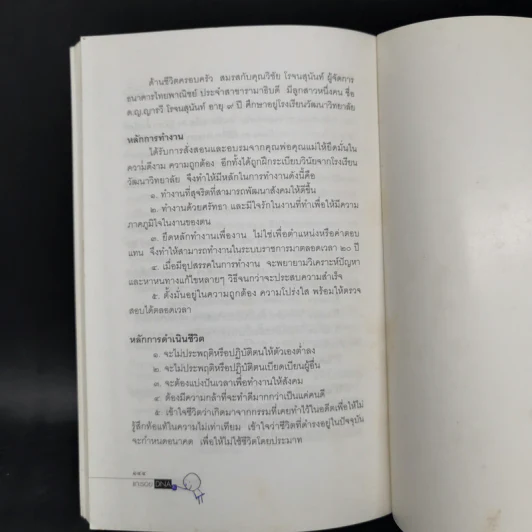 ด้านชีวิตครอบครัว สมรสกับคุณวิชัย โรจนสุนันท์ ผู้จัดการ
ธนาคารไทยพาณิชย์ ประจำสาขารามาธิบดี มีลูกสาวหนึ่งคน ชื่อ
ด.ญ.ญารวี โรจนสุนันท์ อายุ ๙ ปี ศึกษาอยู่โรงเรียนวัฒนาวิทยาลัย
หลักการทำงาน
ได้รับการสั่งสอนและอบรมจากคุณพ่อคุณแม่ให้ยึดมั่นใน
ความดีงาม ความถูกต้อง อีกทั้งได้ถูกฝึกระเบียบวินัยจากโรงเรียน
วัฒนาวิทยาลัย จึงทำให้มีหลักในการทำงานดังนี้คือ
๑. ทำงานที่สุจริตที่สามารถพัฒนาสังคมให้ดีขึ้น
๒. ทำงานด้วยศรัทธา และมีใจรักในงานที่ทำเพื่อให้มีความ
ภาคภูมิใจในงานของตน
๓. ยึดหลักทำงานเพื่องาน ไม่ใช่เพื่อตำแหน่งหรือค่าตอบ
แทน จึงทำให้สามารถทำงานในระบบราชการมาตลอดเวลา ๒๐ ปี
๔. เมื่อมีอุปสรรคในการทำงาน จะพยายามวิเคราะห์ปัญหา
และหาหนทางแก้ไขหลายๆ วิธีจนกว่าจะประสบความสำเร็จ
๕. ตั้งมั่นอยู่ในความถูกต้อง ความโปร่งใส พร้อมให้ตรวจ
สอบได้ตลอดเวลา
หลักการดำเนินชีวิต
๑. จะไม่ประพฤติหรือปฏิบัติตนให้ตัวเองต่ำลง
๒. จะไม่ประพฤติหรือปฏิบัติตนเบียดเบียนผู้อื่น
๓. จะต้องแบ่งปันเวลาเพื่อทำงานให้สังคม
๔. ต้องมีความกล้าที่จะทำดีมากกว่าเป็นแค่คนดี
๕. เข้าใจชีวิตว่าเกิดมาจากกรรมที่เคยทำไว้ในอดีตเพื่อให้ไม่
รู้สึกท้อแท้ในความไม่เท่าเทียม เข้าใจว่าชีวิตที่ดำรงอยู่ในปัจจุบัน
จะกำหนดอนาคต เพื่อให้ไม่ใช้ชีวิตโดยประมาท
DNA